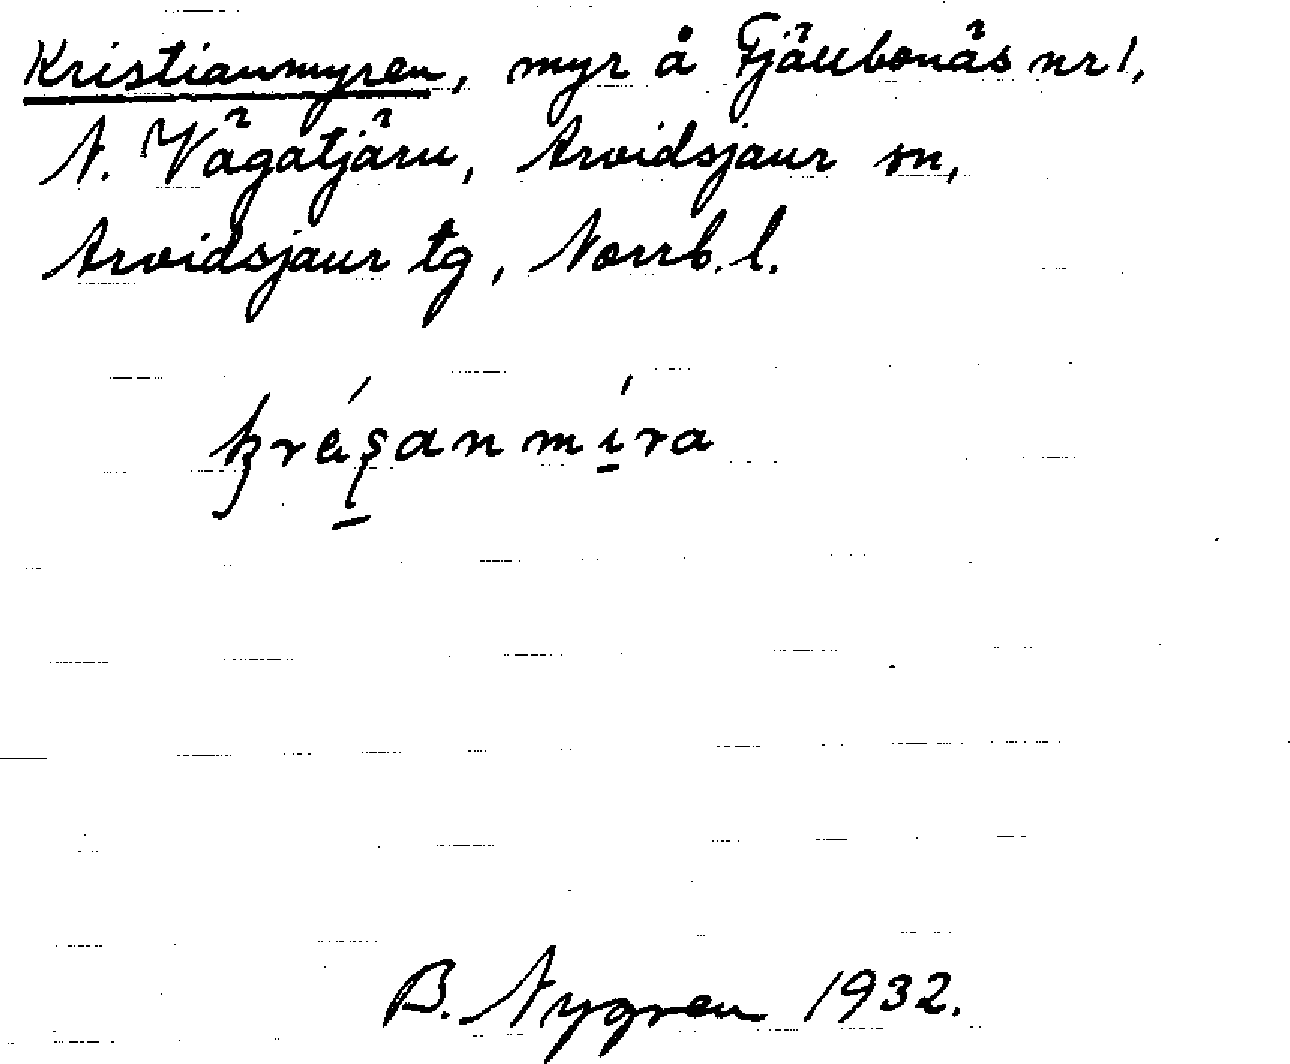 Kristianmyren, myr å Fjällbonäs nr 1,
N. Vägatjärn, Arvidsjaur sn,
Arvidsjaur tg, Norrb. l.
B. Nygren 1932.